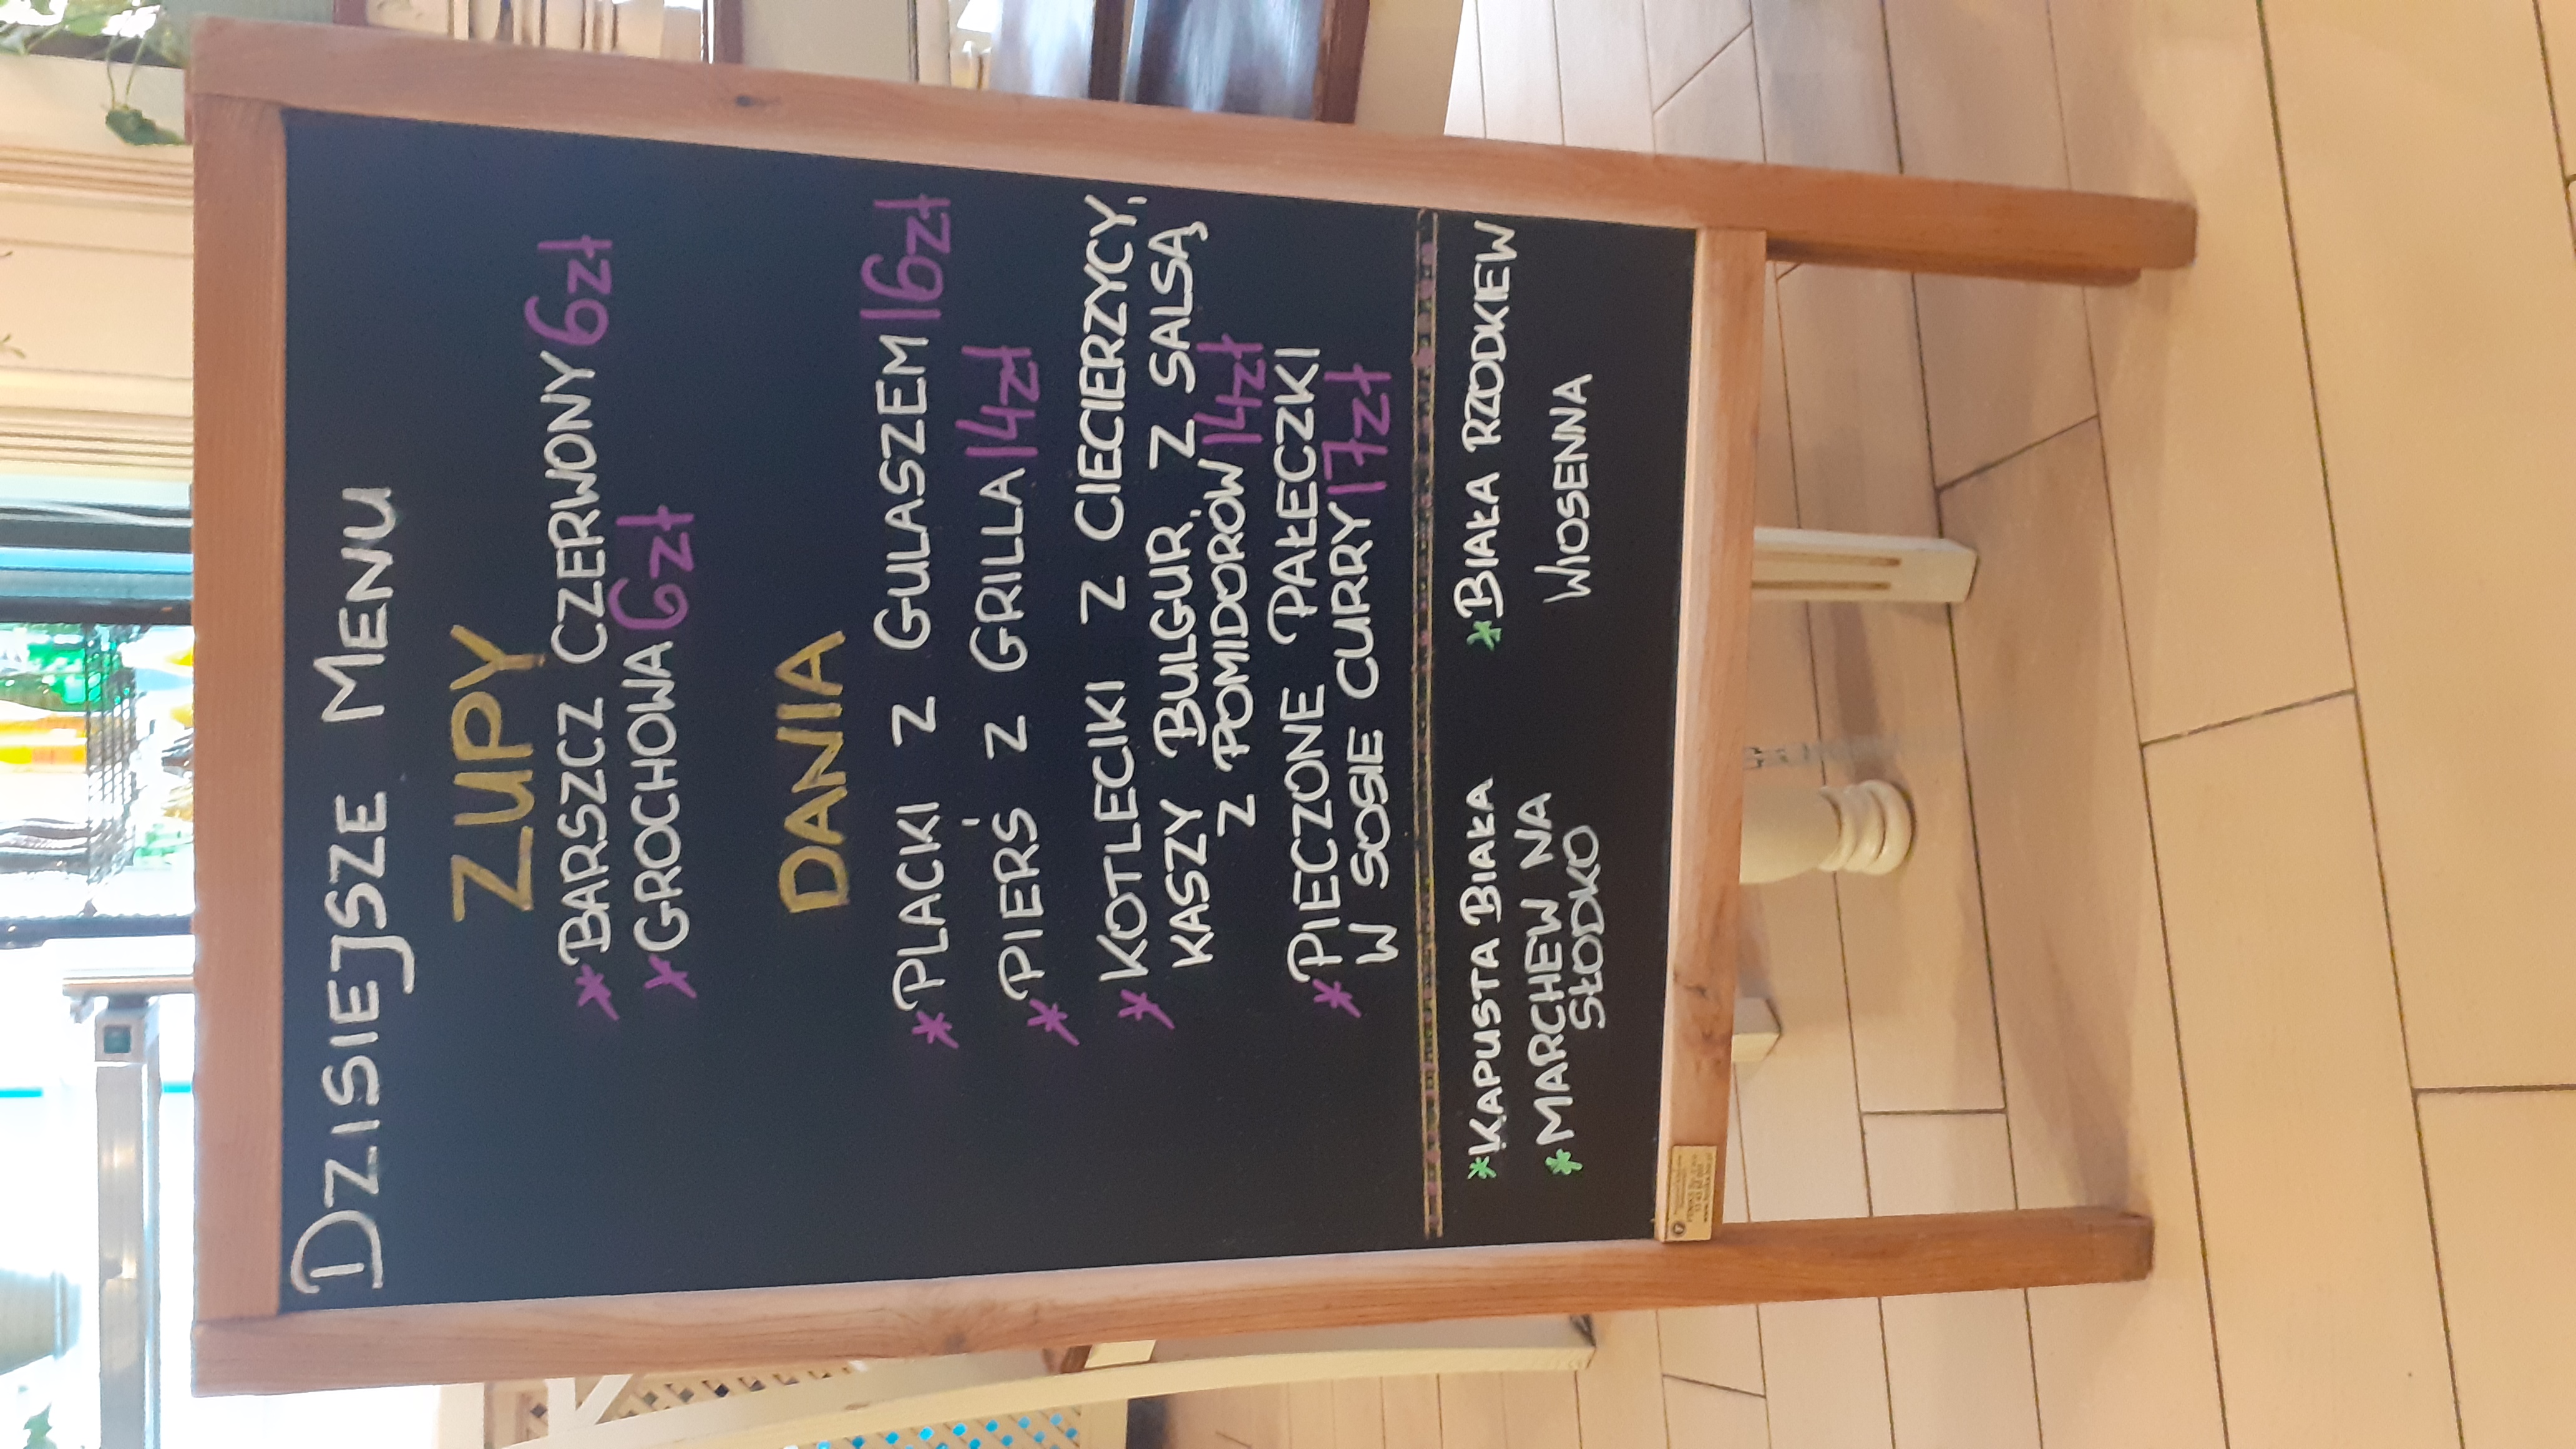 DZISIEJSZE MENU
ZUPY
* BARSZCZ CZERWONY 6zł
* GROCHOWA 6zł
DANIA
* PLACKI Z GULASZEM 16zł
* PIERŚ Z GRILLA 14zł
* KOTLECIKI Z CIECIERZYCY,
KASZY BULGUR, Z SALSĄ
Z POMIDORÓW 14zł
* PIECZONE PAŁECZKI
W SOSIE CURRY 17zł
* KAPUSTA BIAŁA
* MARCHEW NA
SŁODKO
* BIAŁA RZODKIEW
WIOSENNA